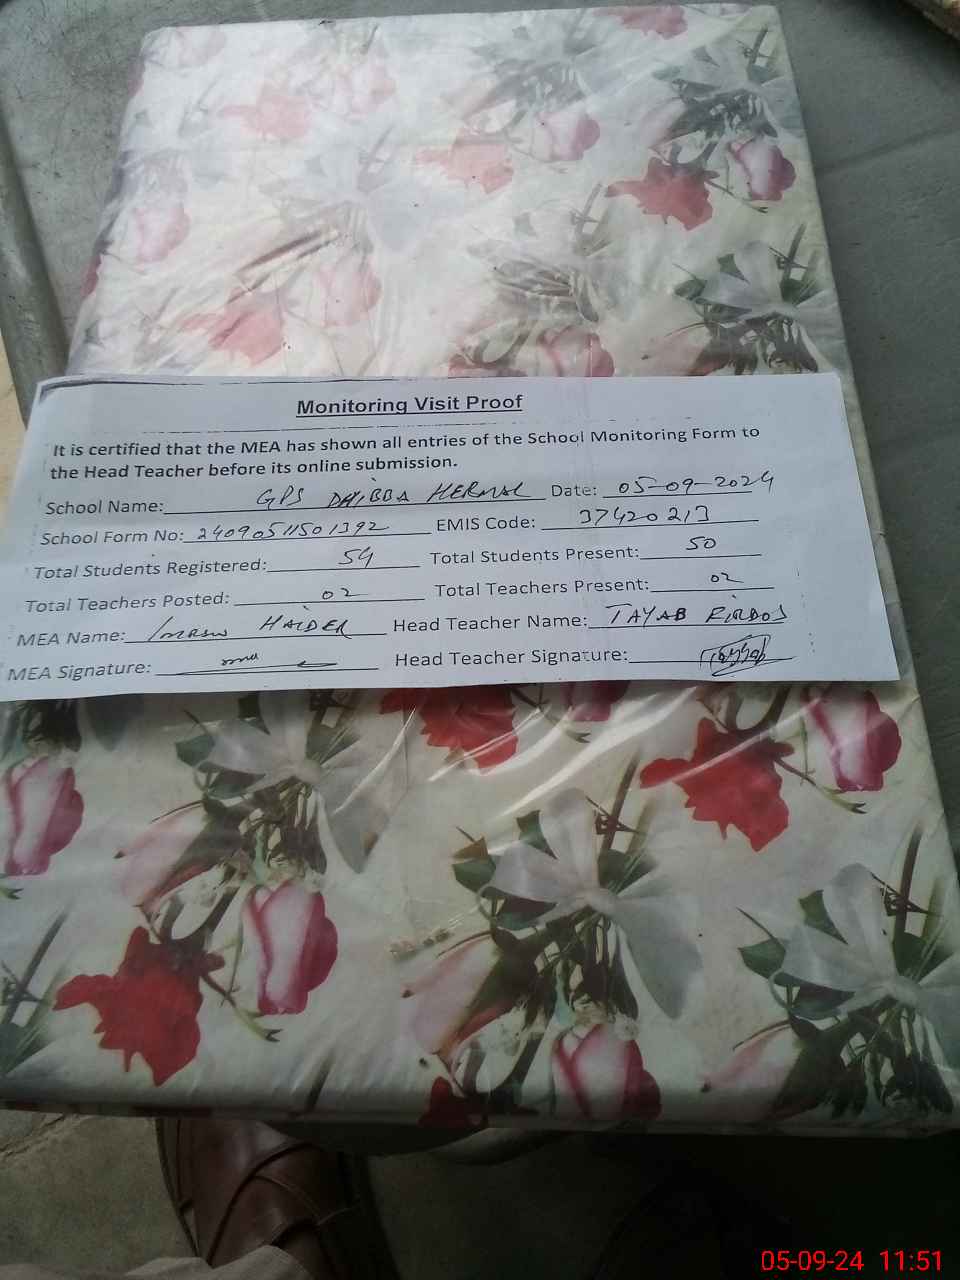 Monitoring Visit Proof
It is certified that the MEA has shown all entries of the School Monitoring Form to
the Head Teacher before its online submission.
School Name: GPS DHIBBA HERNAL Date: 05-09-2024
School Form No: 24090511501392 EMIS Code: 37420213
Total Students Registered: 54 Total Students Present: 50
Total Teachers Posted: 02 Total Teachers Present: 02
MEA Name: HAIDER Head Teacher Name: TAYAB FIRDOS
MEA Signature: Head Teacher Signature:
05-09-24 11:51